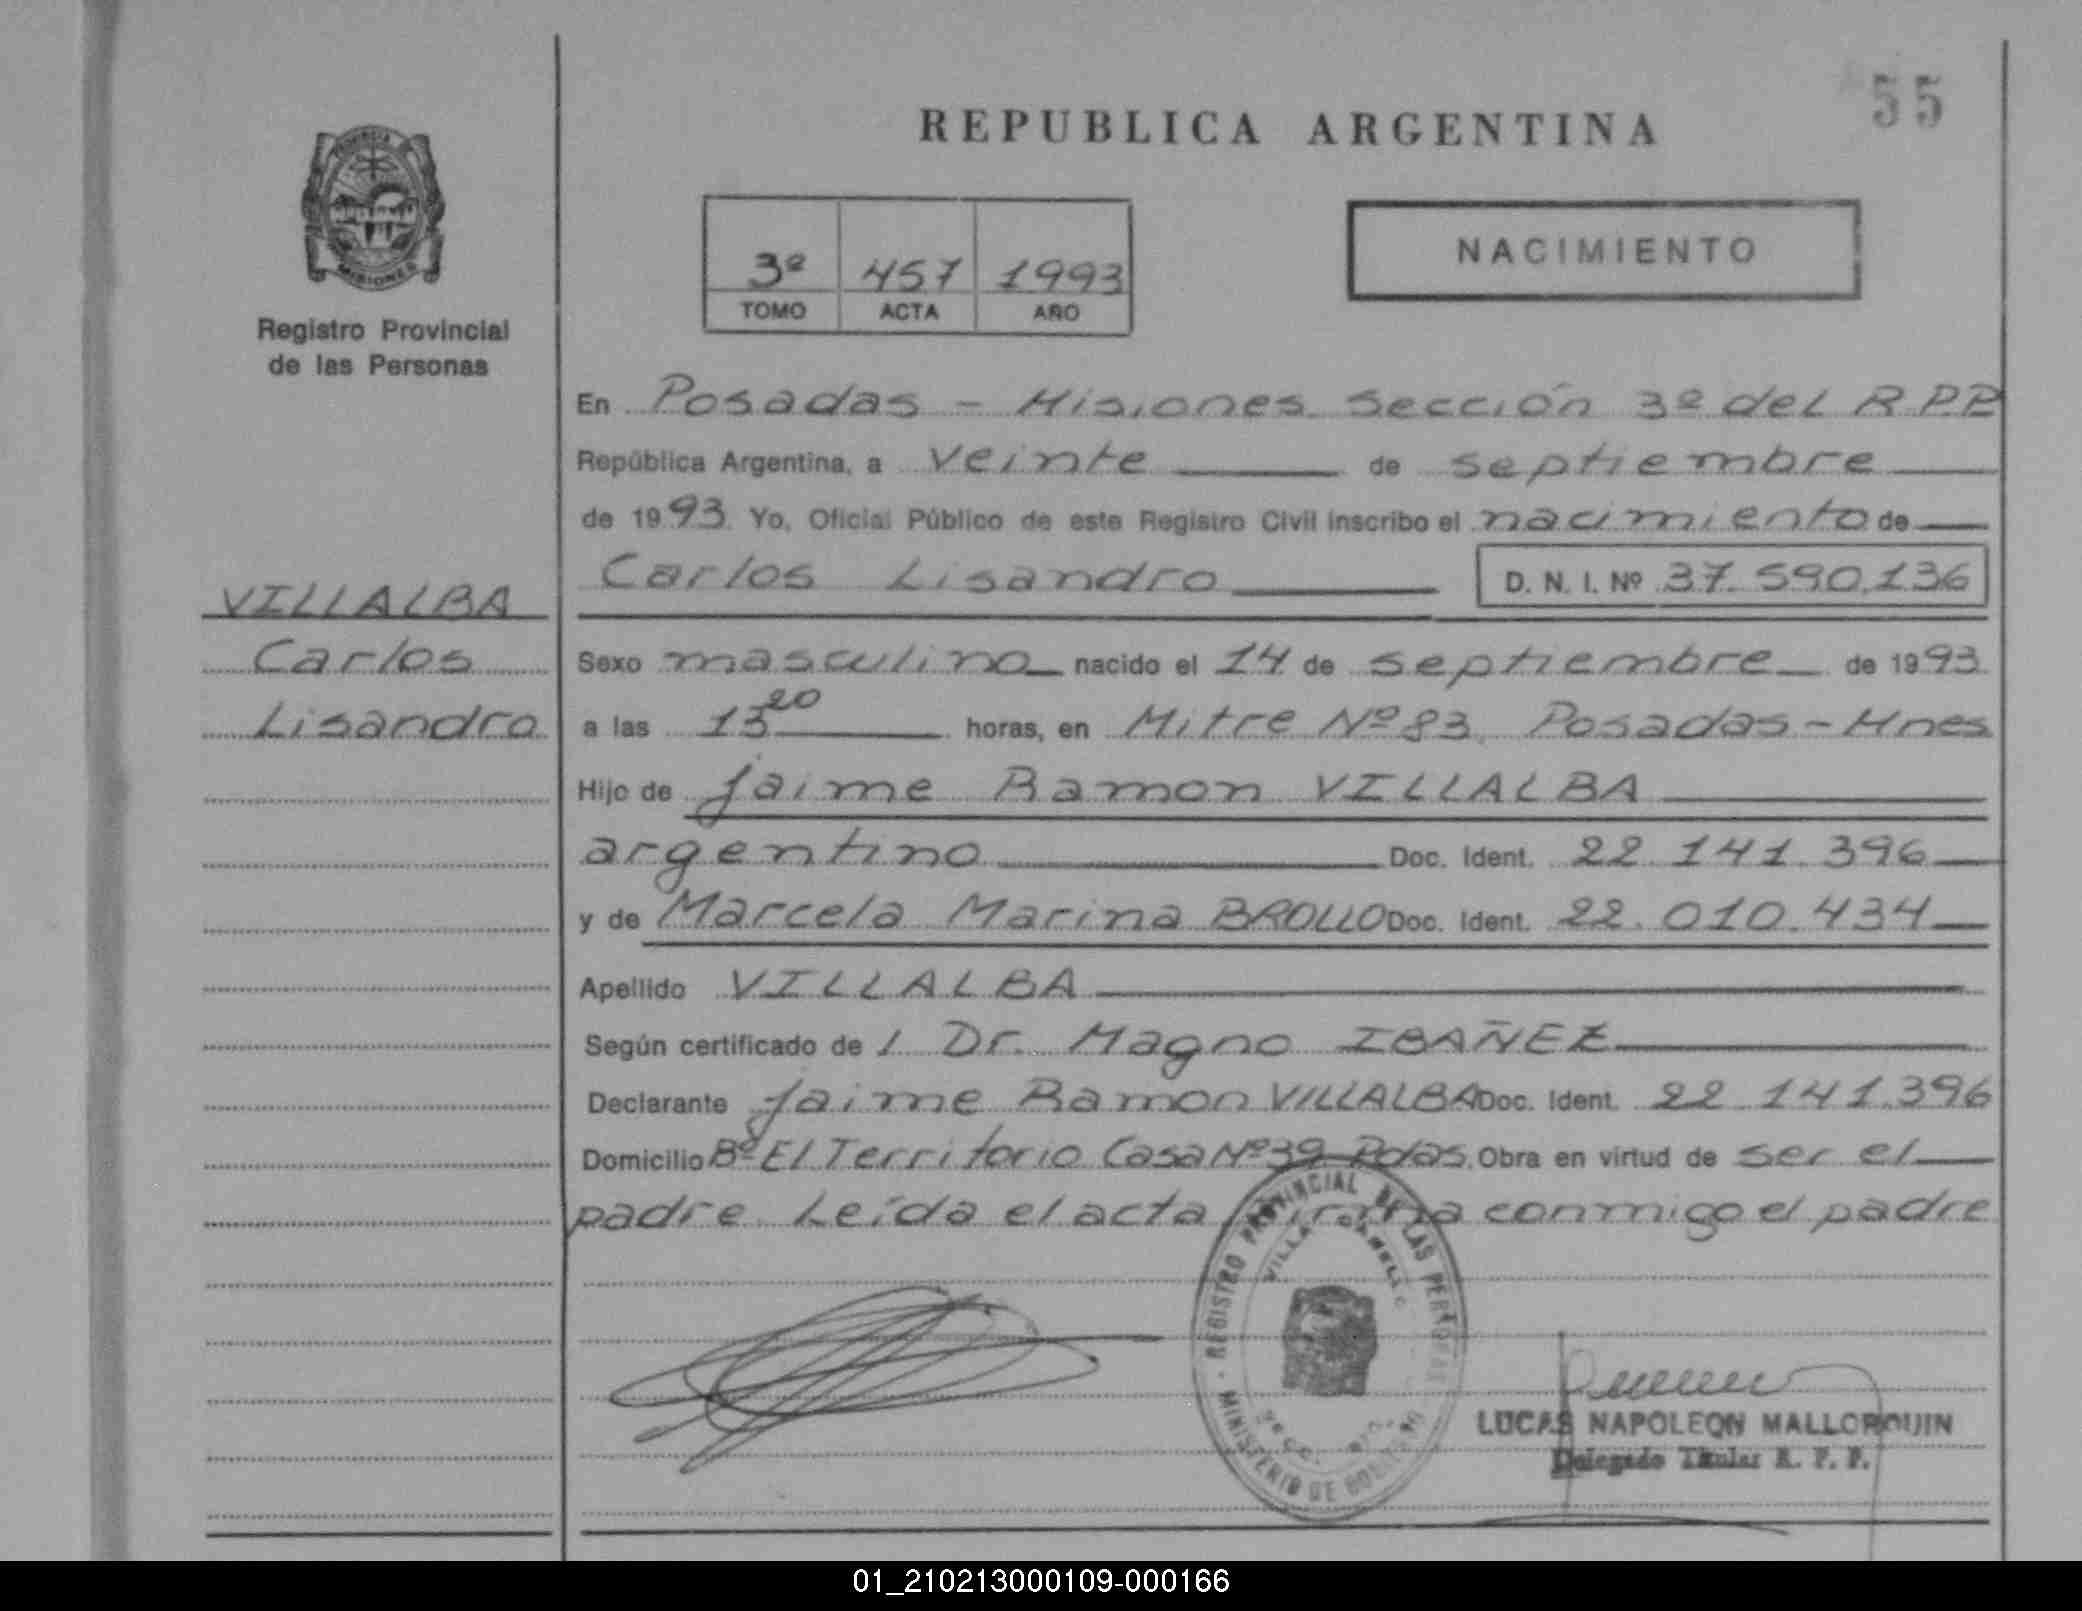 55
REPUBLICA ARGENTINA
PROVINCIA
MISIONES
Registro Provincial
de las Personas
3º 457 1993
TOMO ACTA AÑO
NACIMIENTO
En Posadas - Misiones Sección 3º del R.P.P
República Argentina, a veinte de septiembre
de 1993 Yo, Oficial Público de este Registro Civil inscribo el nacimiento de
Carlos Lisandro D. N. I. Nº 37.590.136
VILLALBA
Carlos
Lisandro
Sexo masculino nacido el 14 de septiembre de 1993
a las 13 20 horas, en Mitre Nº 83, Posadas - Mnes
Hijo de Jaime Ramon VILLALBA
argentino Doc. Ident. 22.141.396
y de Marcela Marina BROLLO Doc. Ident. 22.010.434
Apellido VILLALBA
Según certificado de / Dr. Magno IBAÑEZ
Declarante Jaime Ramon VILLALBA Doc. Ident. 22.141.396
Domicilio Bº El Territorio Casa Nº 39 Pdas. Obra en virtud de ser el
padre. Leída el acta firma conmigo el padre
REGISTRO PROVINCIAL DE LAS PERSONAS
MINISTERIO DE GOBIERNO
LUCAS NAPOLEON MALLORQUIN
Delegado Titular R. P. P.
01_210213000109-000166